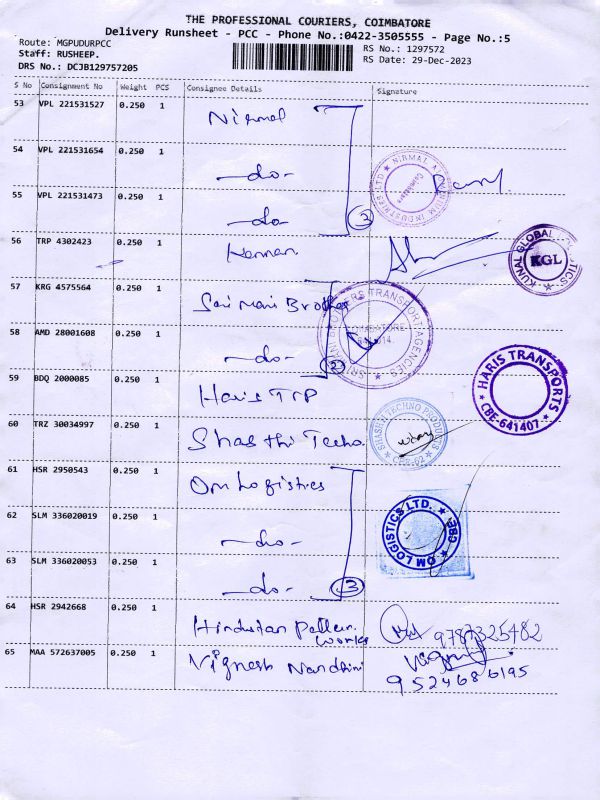 THE PROFESSIONAL COURIERS, COIMBATORE
Delivery Runsheet - PCC - Phone No.:0422-3505555 - Page No.:5
Route: MGPUDURPCC
Staff: RUSHEEP.
DRS No.: DCJB129757205
RS No.: 1297572
RS Date: 29-Dec-2023
S No Consignment No Weight PCS Consignee Details Signature
53 VPL 221531527 0.250 1 Nirmal
54 VPL 221531654 0.250 1 -do-
NIRMAL INDUSTRIES LTD
55 VPL 221531473 0.250 1 -do- 3
56 TRP 4302423 0.250 1 Kannan
KUNAL GLOBAL LOGISTICS
KGL
57 KRG 4575564 0.250 1 Sai Mani Brothers
TRANSPORT AGENCIES
58 AMD 28001608 0.250 1 -do- 2
59 BDQ 2000085 0.250 1 Haris TRP
HARIS TRANSPORTS
CBE-641407
60 TRZ 30034997 0.250 1 Shasthi Techo.
SHASHTI TECHNO PRODUCTS
61 HSR 2950543 0.250 1 Om Logistics
OM LOGISTICS LTD. CBE.
62 SLM 336020019 0.250 1 -do-
63 SLM 336020053 0.250 1 -do- 3
64 HSR 2942668 0.250 1 Hindustan Pattern works 9787325482
65 MAA 572637005 0.250 1 Vignesh Nandhini
9524686195